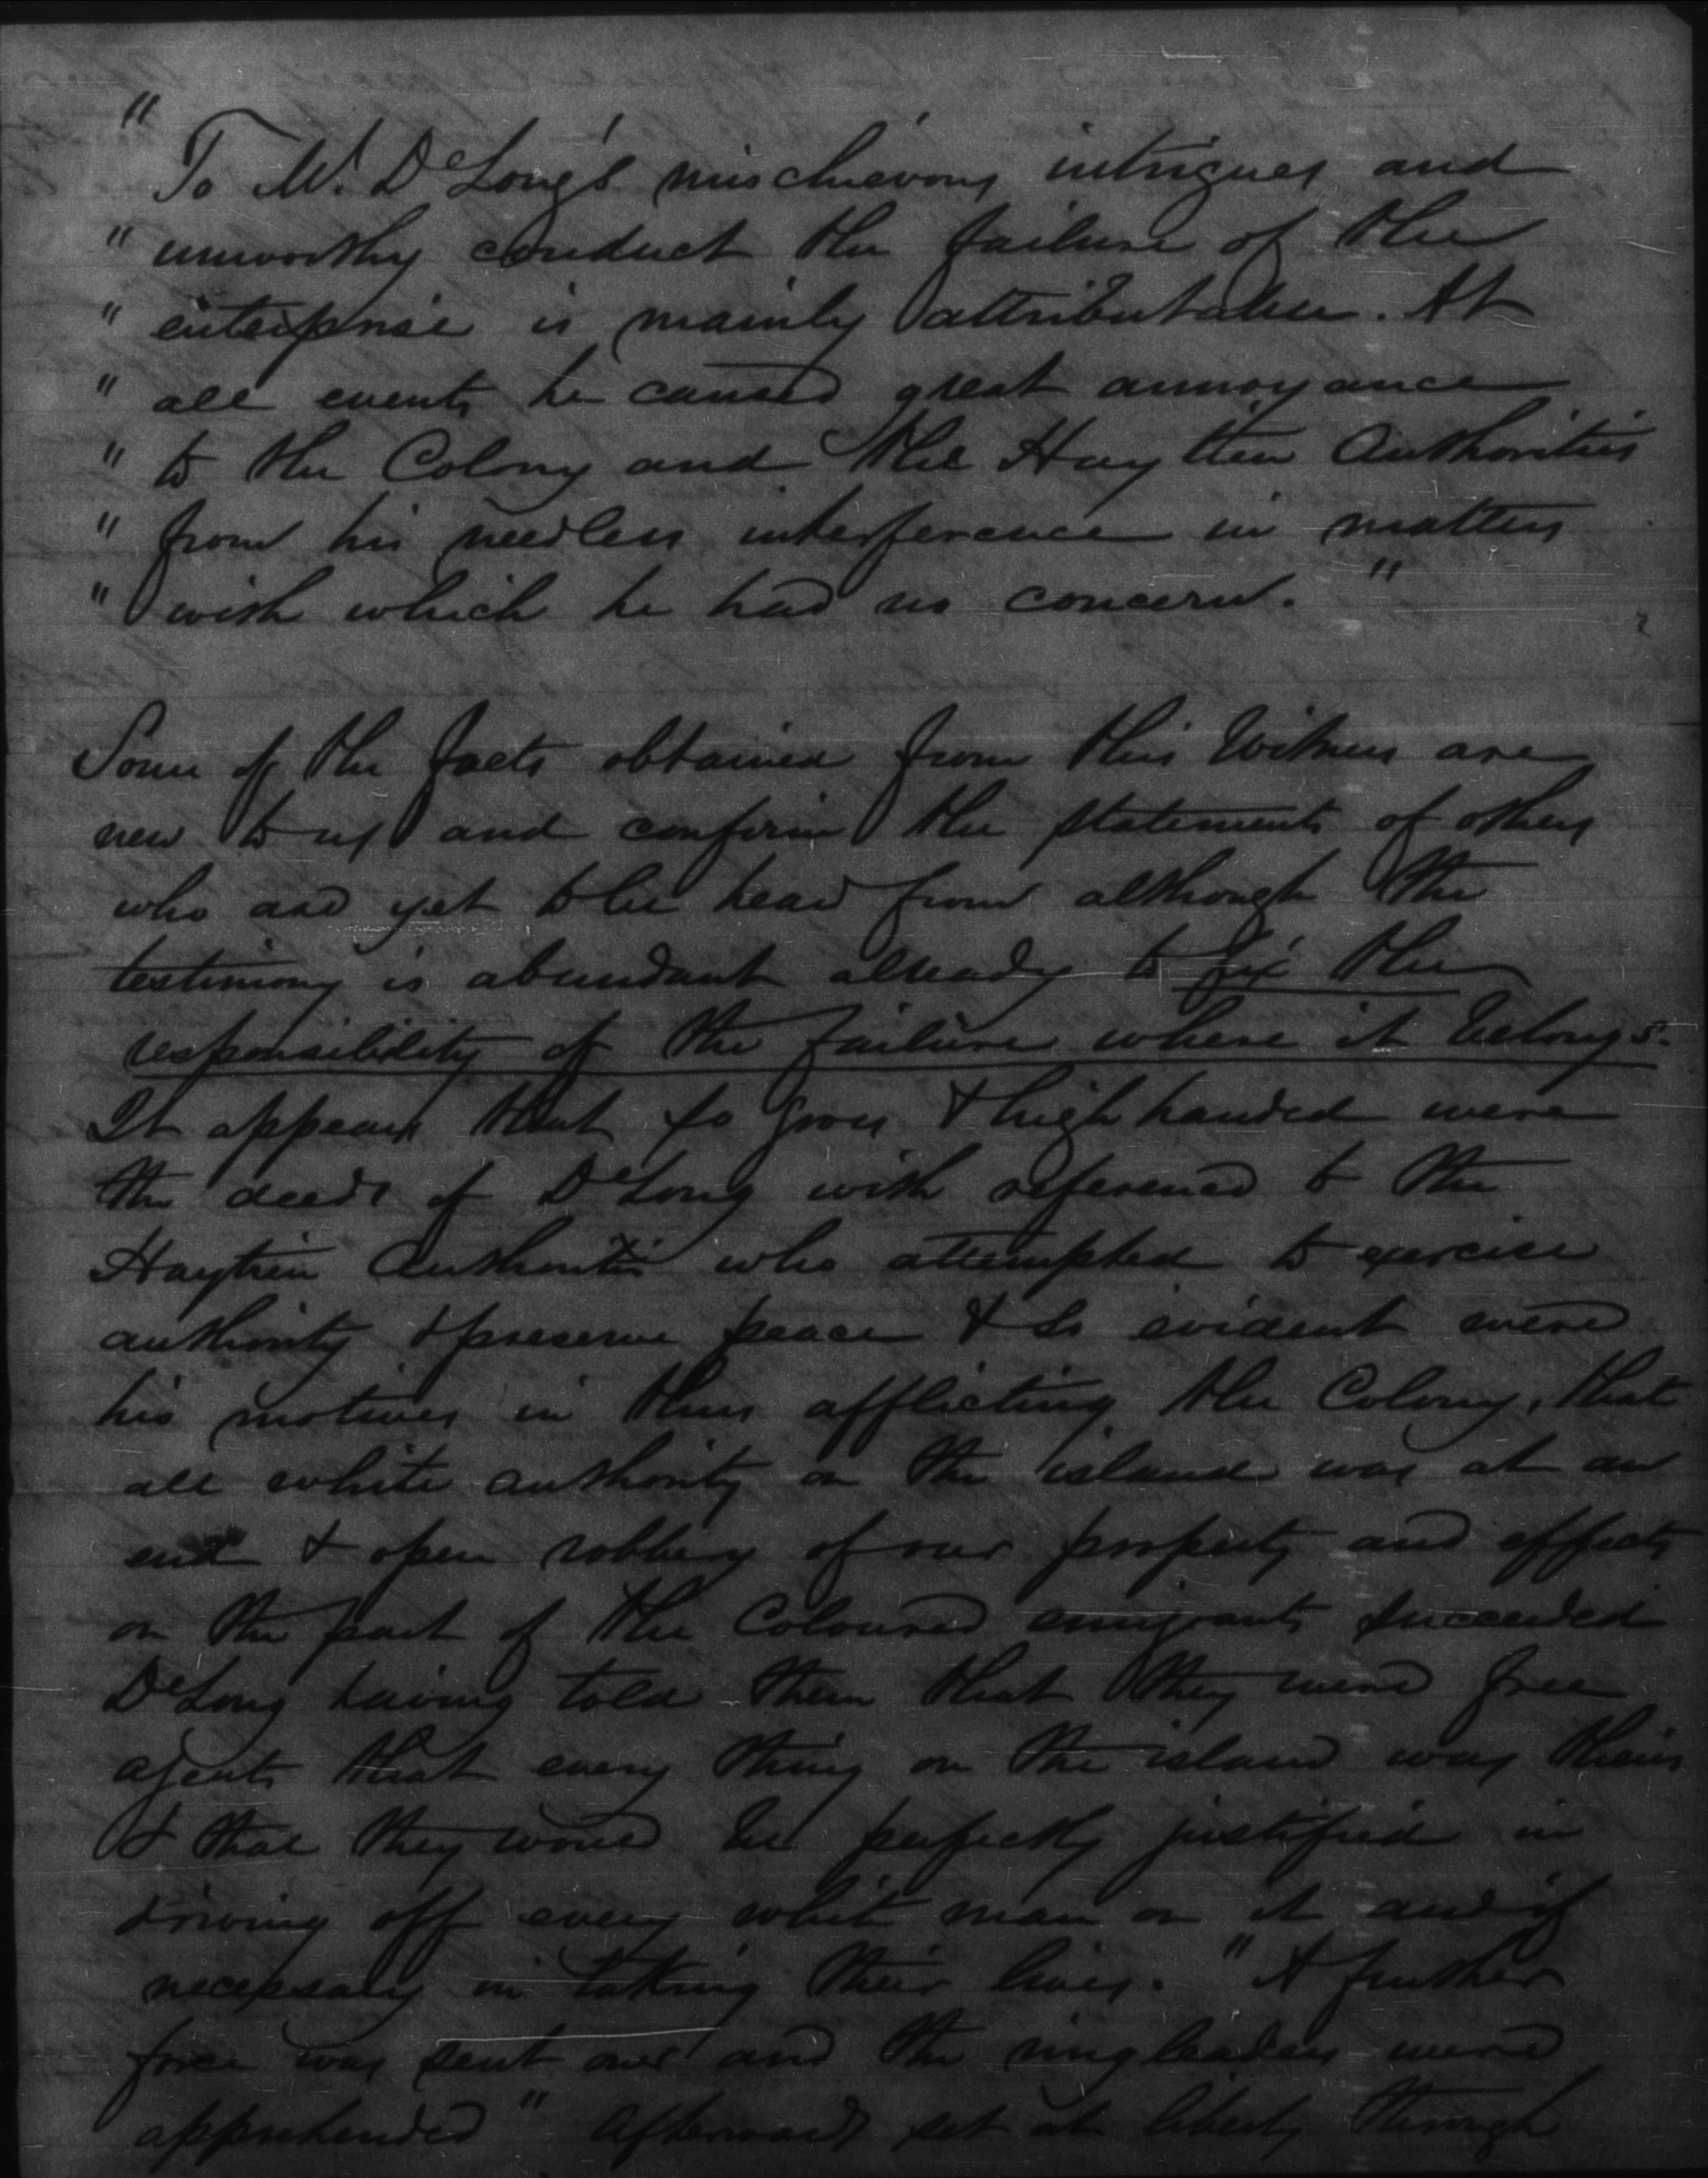 "
To Mr. DeLong's mischievous intrigues and
" unworthy conduct the failure of the
" enterprise is mainly attributable. At
" all events he caused great annoyance
" to the Colony and the Haytien Authorities
" from his needless interference in matters
" with which he had no concern. "
Some of the facts obtained from this Witness are
new to us and confirm the statements of others
who are yet to be hear from although the
testimony is abundant already to fix the
responsibility of the failure where it belongs.
It appears that so gross & high handed were
the deeds of DeLong with reference to the
Haytien Authorities who attempted to exercise
authority & preserve peace & so evident were
his motives in thus afflicting the Colony, that
all white authority on the island was at an
end & open robbery of our property and effects
on the part of the Coloured emigrants succeeded
DeLong having told them that they were free
agents that every thing on the island was theirs
& that they would be perfectly justified in
driving off every white man on it and if
necessary in taking their lives. "A further
force was sent over and the ringleaders were
apprehended" afterwards set at liberty through